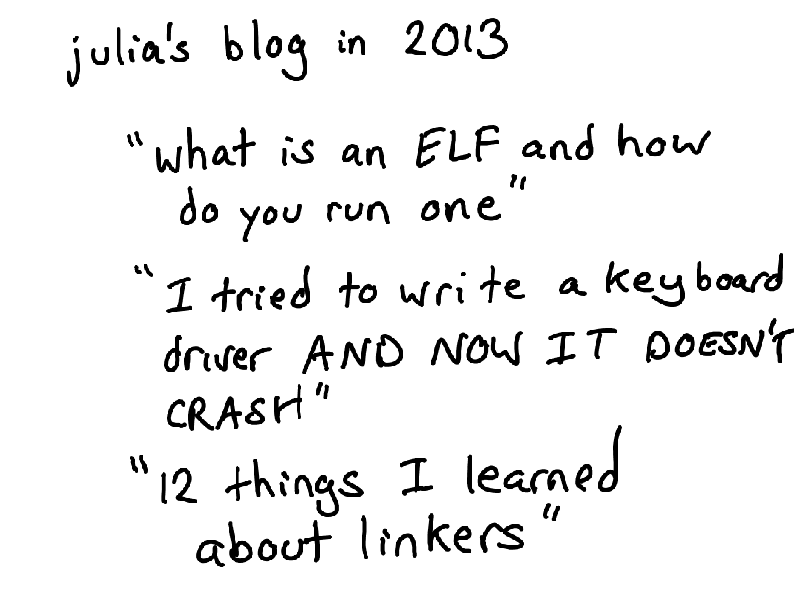 julia's blog in 2013
"what is an ELF and how
do you run one"
"I tried to write a keyboard
driver AND NOW IT DOESN'T
CRASH"
"12 things I learned
about linkers"